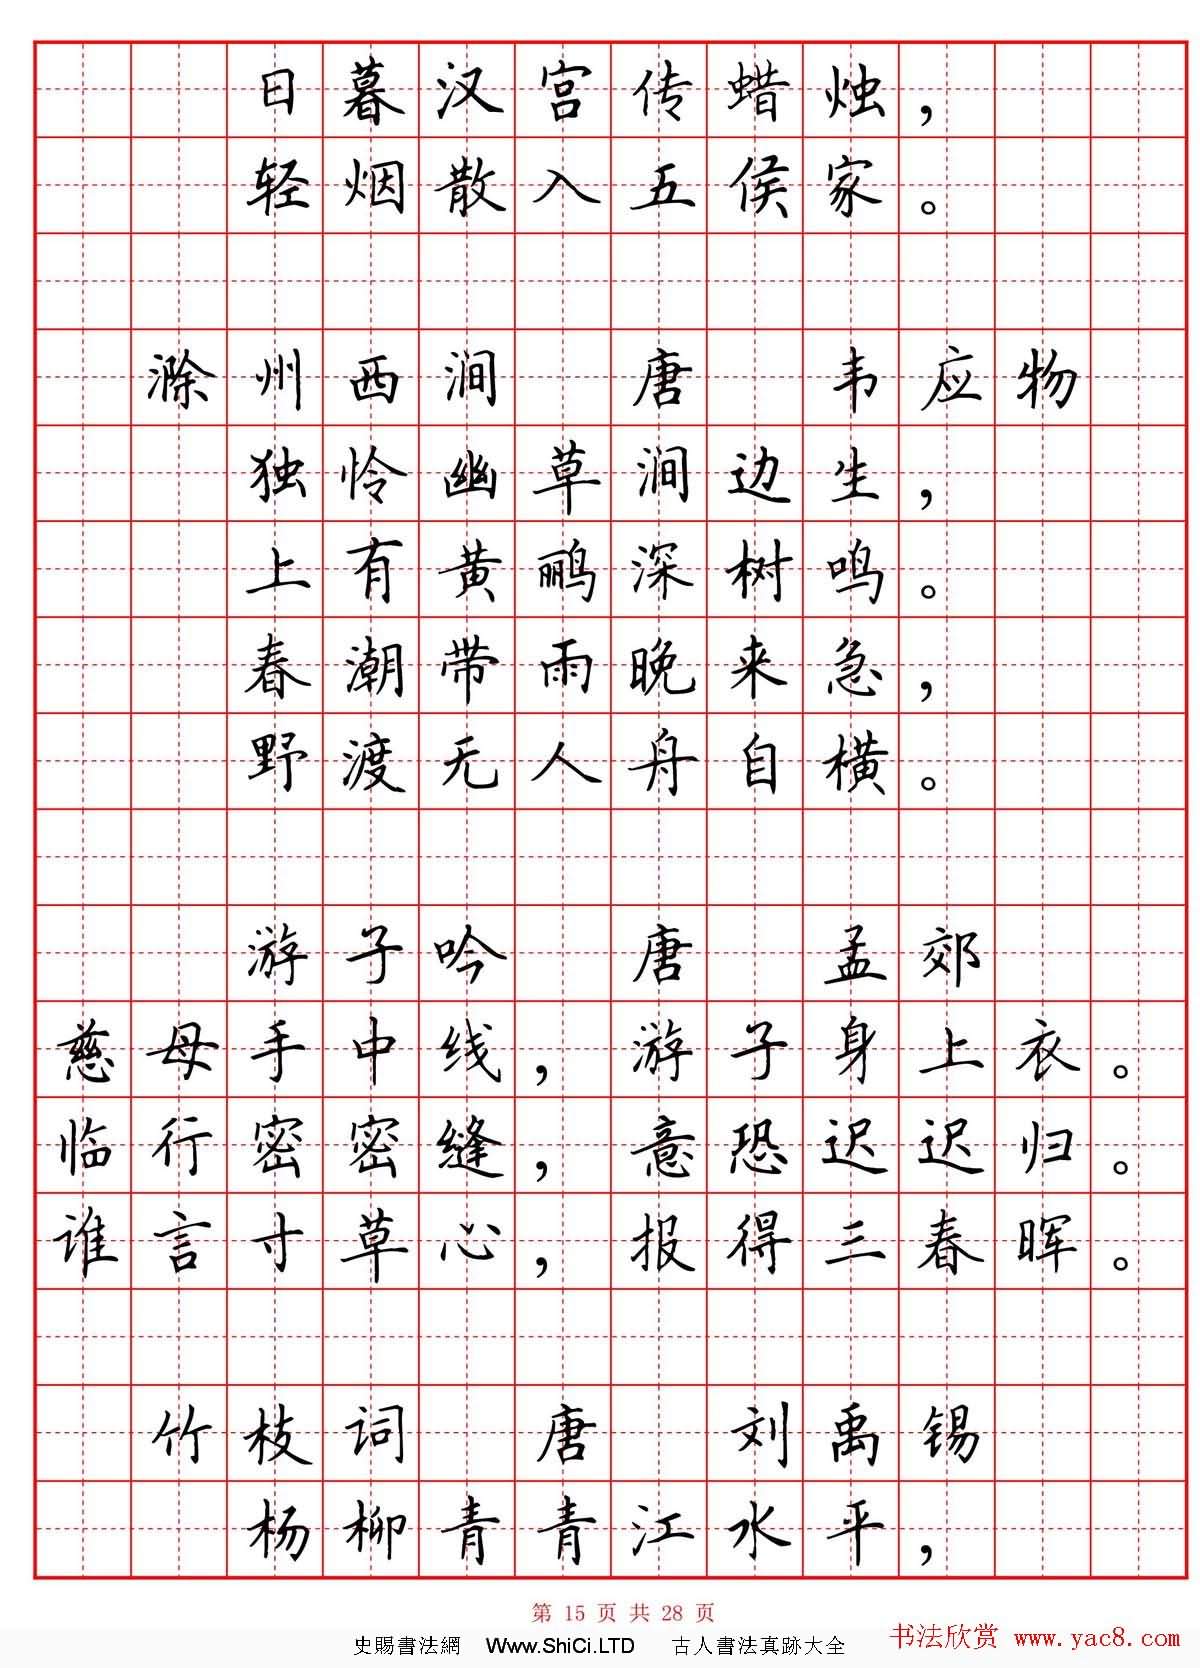 日暮汉宫传蜡烛，
轻烟散入五侯家。
滁州西涧 唐 韦应物
独怜幽草涧边生，
上有黄鹂深树鸣。
春潮带雨晚来急，
野渡无人舟自横。
游子吟 唐 孟郊
慈母手中线，游子身上衣。
临行密密缝，意恐迟迟归。
谁言寸草心，报得三春晖。
竹枝词 唐 刘禹锡
杨柳青青江水平，
第 15 页 共 28 页
史賜書法網 Www.ShiCi.LTD 古人書法真跡大全
书法欣赏 www.yac8.com